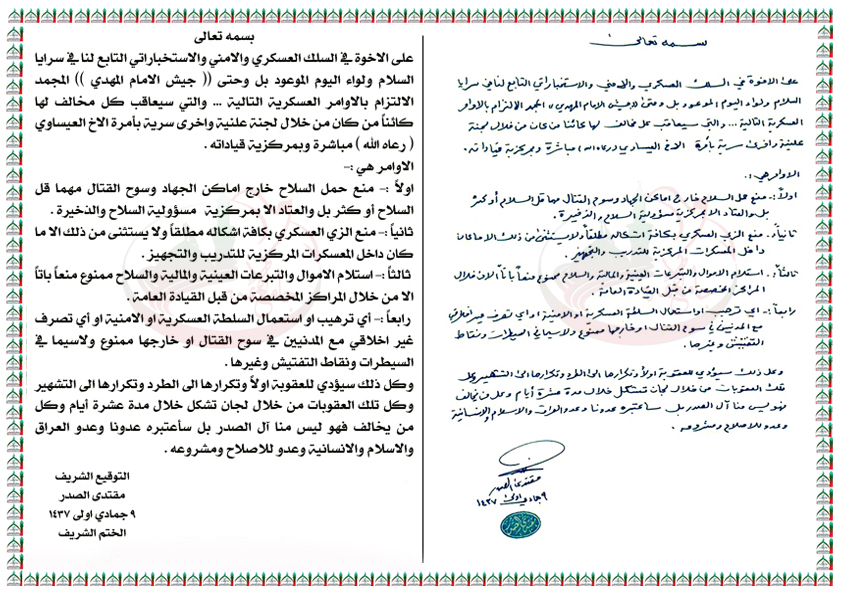 بسمه تعالى
على الاخوة في السلك العسكري والامني والاستخباراتي التابع لنا في سرايا
السلام ولواء اليوم الموعود بل وحتى (( جيش الامام المهدي )) المجمد الالتزام بالاوامر
العسكرية التالية ... والتي سيعاقب كل مخالف لها كائناً من كان من خلال لجنة
علنية واخرى سرية بأمرة الاخ العيساوي (رعاه الله) مباشرة وبمركزية قياداته .
الاوامر هي :-
اولاً :- منع حمل السلاح خارج اماكن الجهاد وسوح القتال مهما قل السلاح أو كثر
بل والعتاد الا بمركزية مسؤولية السلاح والذخيرة .
ثانياً :- منع الزي العسكري بكافة اشكاله مطلقاً ولا يستثنى من ذلك الا ما كان
داخل المعسكرات المركزية للتدريب والتجهيز .
ثالثاً :- استلام الاموال والتبرعات العينية والمالية والسلاح ممنوع منعاً باتاً الا من خلال
المراكز المخصصة من قبل القيادة العامة .
رابعاً :- اي ترهيب او استعمال السلطة العسكرية او الامنية او اي تصرف غير اخلاقي
مع المدنيين في سوح القتال او خارجها ممنوع ولاسيما في السيطرات ونقاط
التفتيش وغيرها .
وكل ذلك سيؤدي للعقوبة اولاً وتكرارها الى الطرد وتكرارها الى التشهير وكل
تلك العقوبات من خلال لجان تشكل خلال مدة عشرة أيام وكل من يخالف
فهو ليس منا آل الصدر بل سأعتبره عدونا وعدو العراق والاسلام والانسانية
وعدو للاصلاح ومشروعه .
مقتدى الصدر
٩ جمادي اولى ١٤٣٧
بسمه تعالى
على الاخوة في السلك العسكري والامني والاستخباراتي التابع لنا في سرايا
السلام ولواء اليوم الموعود بل وحتى (( جيش الامام المهدي )) المجمد
الالتزام بالاوامر العسكرية التالية ... والتي سيعاقب كل مخالف لها
كائناً من كان من خلال لجنة علنية واخرى سرية بأمرة الاخ العيساوي
( رعاه الله ) مباشرة وبمركزية قياداته .
الاوامر هي :-
اولاً :- منع حمل السلاح خارج اماكن الجهاد وسوح القتال مهما قل
السلاح أو كثر بل والعتاد الا بمركزية مسؤولية السلاح والذخيرة .
ثانياً :- منع الزي العسكري بكافة اشكاله مطلقاً ولا يستثنى من ذلك الا ما
كان داخل المعسكرات المركزية للتدريب والتجهيز .
ثالثاً :- استلام الاموال والتبرعات العينية والمالية والسلاح ممنوع منعاً باتاً
الا من خلال المراكز المخصصة من قبل القيادة العامة .
رابعاً :- أي ترهيب او استعمال السلطة العسكرية او الامنية او أي تصرف
غير اخلاقي مع المدنيين في سوح القتال او خارجها ممنوع ولاسيما في
السيطرات ونقاط التفتيش وغيرها .
وكل ذلك سيؤدي للعقوبة اولاً وتكرارها الى الطرد وتكرارها الى التشهير
وكل تلك العقوبات من خلال لجان تشكل خلال مدة عشرة أيام وكل
من يخالف فهو ليس منا آل الصدر بل سأعتبره عدونا وعدو العراق
والاسلام والانسانية وعدو للاصلاح ومشروعه .
التوقيع الشريف
مقتدى الصدر
٩ جمادي اولى ١٤٣٧
الختم الشريف